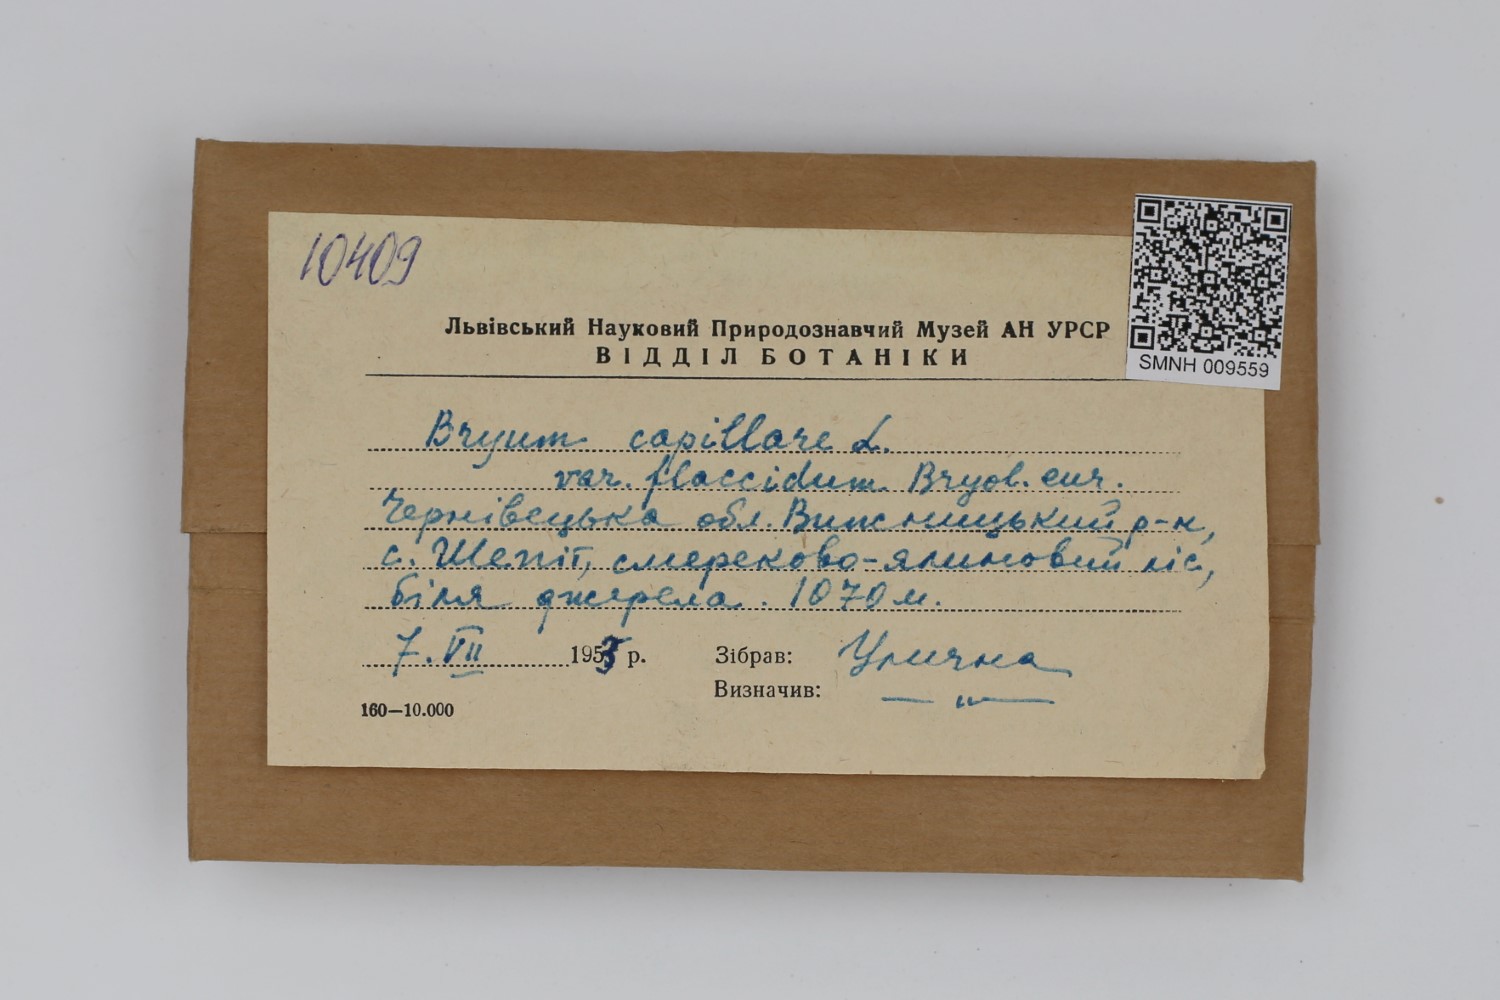 10409
Львівський Науковий Природознавчий Музей АН УРСР
ВІДДІЛ БОТАНІКИ
SMNH 009559
Bryum capillare L.
var. flaccidum Bryol. eur.
Чернівецька обл. Вижницький р-н,
с. Шепіт, смереково-ялиновий ліс,
біля джерела. 1070 м.
7. VII 195 р.
Зібрав: Улична
Визначив: — " —
160—10.000